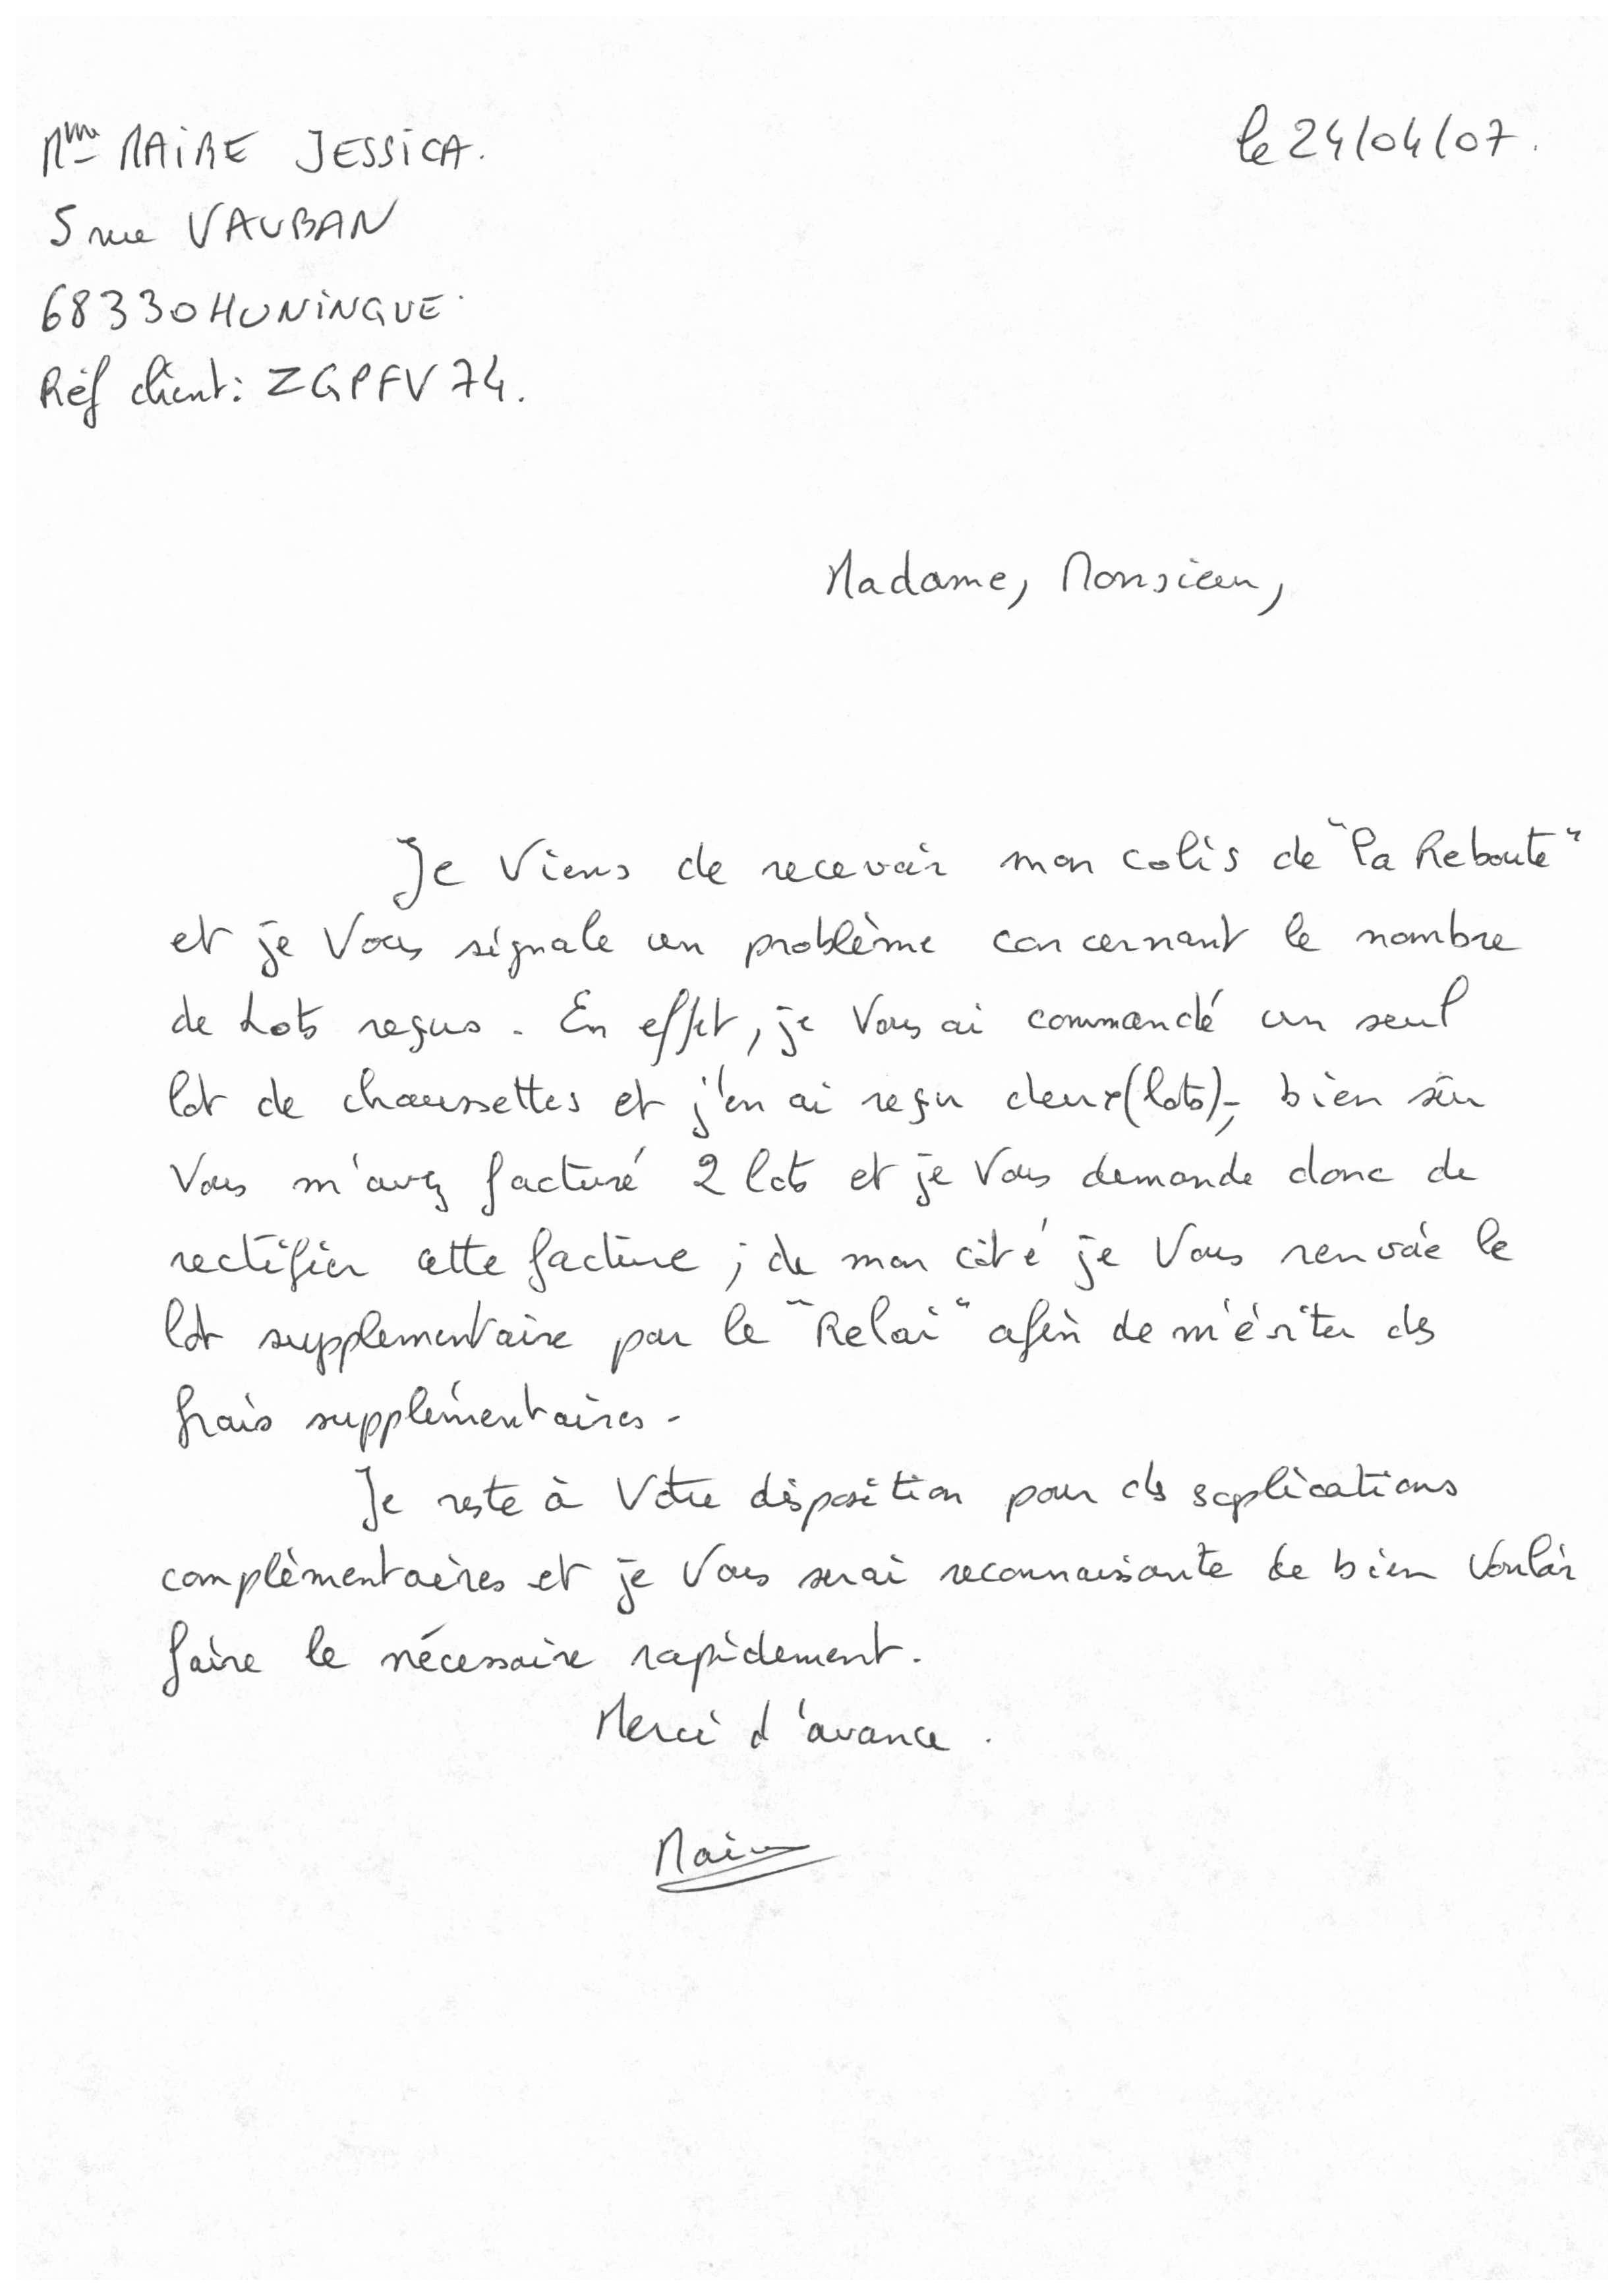 Mme MAIRE JESSICA.
le 24/04/07.
5 rue VAUBAN
68330 HUNINGUE.
Réf client: ZGPFV74.
Madame, Monsieur,
Je Viens de recevoir mon colis de "la Reboute"
et je Vous signale un problème concernant le nombre
de Lots reçus. En effet, je Vous ai commandé un seul
lot de chaussettes et j'en ai reçu deux (lots), bien sûr
Vous m'avez facturé 2 lots et je Vous demande donc de
rectifier cette facture ; de mon côté je Vous renvoie le
lot supplementaire par le "Relai" afin de m'éviter des
frais supplémentaires.
Je reste à Votre disposition pour des explications
complémentaires et je Vous serai reconnaissante de bien Vouloir
faire le nécessaire rapidement.
Merci d'avance.
Maire